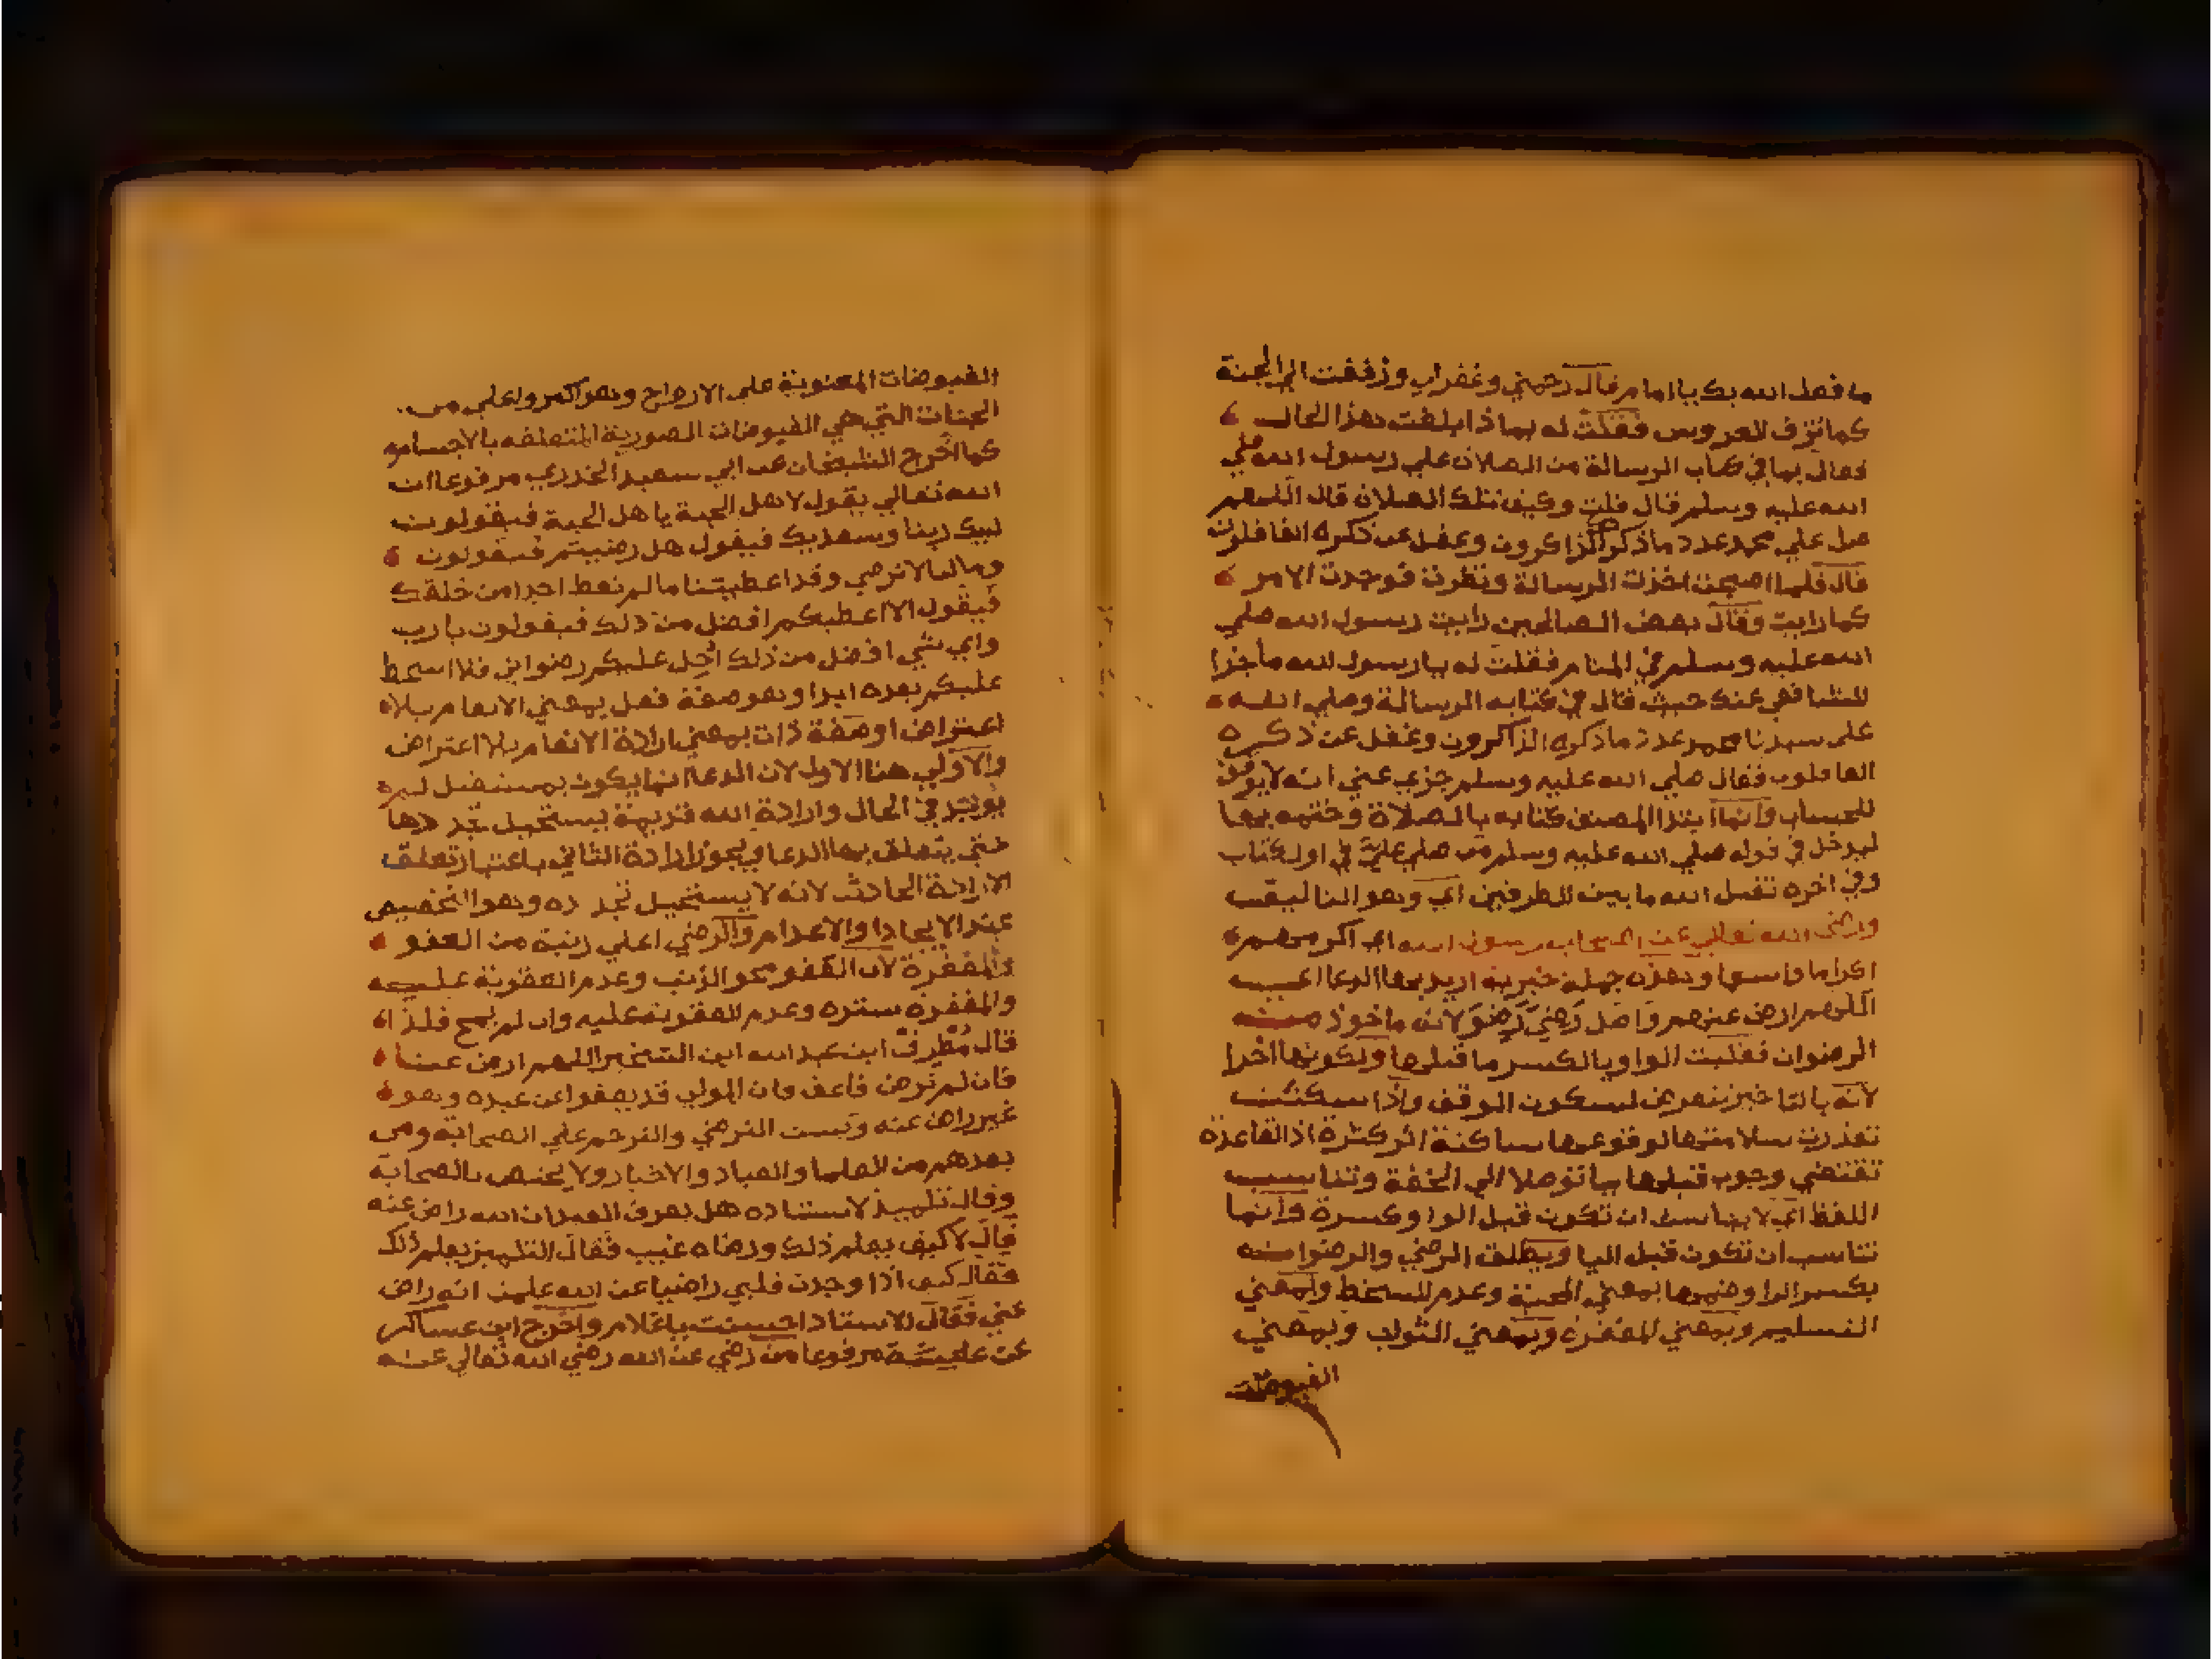 ما فعل الله بك يا امام قال رحمني وغفر لي وزففت الي الجنة
كما تزف العروس فقلت له بماذا بلغت هذا الحال
فقال بما في كتاب الرسالة من الصلاة علي رسول الله صلي
الله عليه وسلم قال قلت وكيف تلك الصلاة قال اللهم
صل علي محمد عدد ما ذكره الذاكرون وغفل عن ذكره الغافلون
قال فلما اصبحت اخذت الرسالة ونظرت فوجدت الامر
كما رايت وقال بعض الصالحين رايت رسول الله صلي
الله عليه وسلم في المنام فقلت له يا رسول الله ما جزا
الشافعي عندك حيث قال في كتابه الرسالة وصلي الله
علي سيدنا محمد عدد ما ذكره الذاكرون وغفل عن ذكره
الغافلون فقال صلي الله عليه وسلم جزي عني انه لا يوقف
للحساب وانما ابتدا المصنف كتابه بالصلاة وختمه بها
ليدخل في قوله صلي الله عليه وسلم من صلي علي في اول كتاب
وفي اخره تقبل الله ما بين الطرفين اي وهو التاليف
ورضي الله تعالي عن اصحاب رسول الله اي اكرمهم
اكراما واسعا وهذه جملة خبرية اريد بها الدعا اعني
اللهم ارض عنهم واصل رضي رضو لانه ماخوذ من
الرضوان فقلبت الواو يا لكسر ما قبلها ولكونها اخرا
لانه بالتاخير تتعرض لسكون الوقف واذا سكنت
تعذرت سلامتها لوقوعها ساكنة اثر كسرة اذ القاعدة
تقتضي وجوب قلبها يا توصلا الي الخفة وتناسب
اللفظ اي لا يناسب ان تكون قبل الواو كسرة وانما
تناسب ان تكون قبل اليا ويطلق الرضي والرضوان
بكسر الرا وضمها بمعني المحبة وعدم السخط وبمعني
التسليم وبمعني المغفرة وبمعني الثواب وبمعني
الفيوضات
الفيوضات المعنوية علي الارواح وهو اكبر واعلي من
الجنات التي هي الفيوضات الصورية المتعلقه بالاجسام
كما اخرج الشيخان عن ابي سعيد الخدري مرفوعا ان
الله تعالي يقول لاهل الجنة يا هل الجنة فيقولون
لبيك ربنا وسعديك فيقول هل رضيتم فيقولون
وما لنا لا نرضي وقد اعطيتنا ما لم تعط احدا من خلقك
فيقول الا اعطيكم افضل من ذلك فيقولون يا رب
واي شي افضل من ذلك احل عليكم رضواني فلا اسخط
عليكم بعده ابدا وهو صفة فعل بمعني الانعام بلا
اعتراض او صفة ذات بمعني ارادة الانعام بلا اعتراض
والاولي هنا الاول لان الدعا انما يكون بمستقبل لم
يوثر في الحال وارادة الله قديمة يستحيل تجددها
حتي يتعلق بها الدعا ويجوز ارادة الثاني باعتبار تعلق
الارادة الحادث لانه لا يستحيل تجدده وهو التخصيص
عند الايجاد او الاعدام والرضي اعلي رتبة من العفو
والمغفرة لان العفو محو الذنب وعدم العقوبة عليه
والمغفرة ستره وعدم العقوبة عليه وان لم يمح فلذا
قال مطرف ابن عبد الله ابن الشخير اللهم ارض عنا
فان لم ترض فاعف فان المولي قد يعفوا عن عبده وهو
غير راض عنه ويسن الترضي والترحم علي الصحابة ومن
بعدهم من العلما والعباد والاخيار ولا يختص بالصحابة
وقال تلميذ لاستاده هل يعرف العبد ان الله راض عنه
قال لا كيف يعلم ذلك ورضاه غيب فقال التلميذ يعلم ذلك
فقال كيف اذا وجدت قلبي راضيا عن الله علمت انه راض
عني فقال الاستاد احسنت يا غلام واخرج ابن عساكر
عن عايشة مرفوعا من رضي عن الله رضي الله تعالي عنه